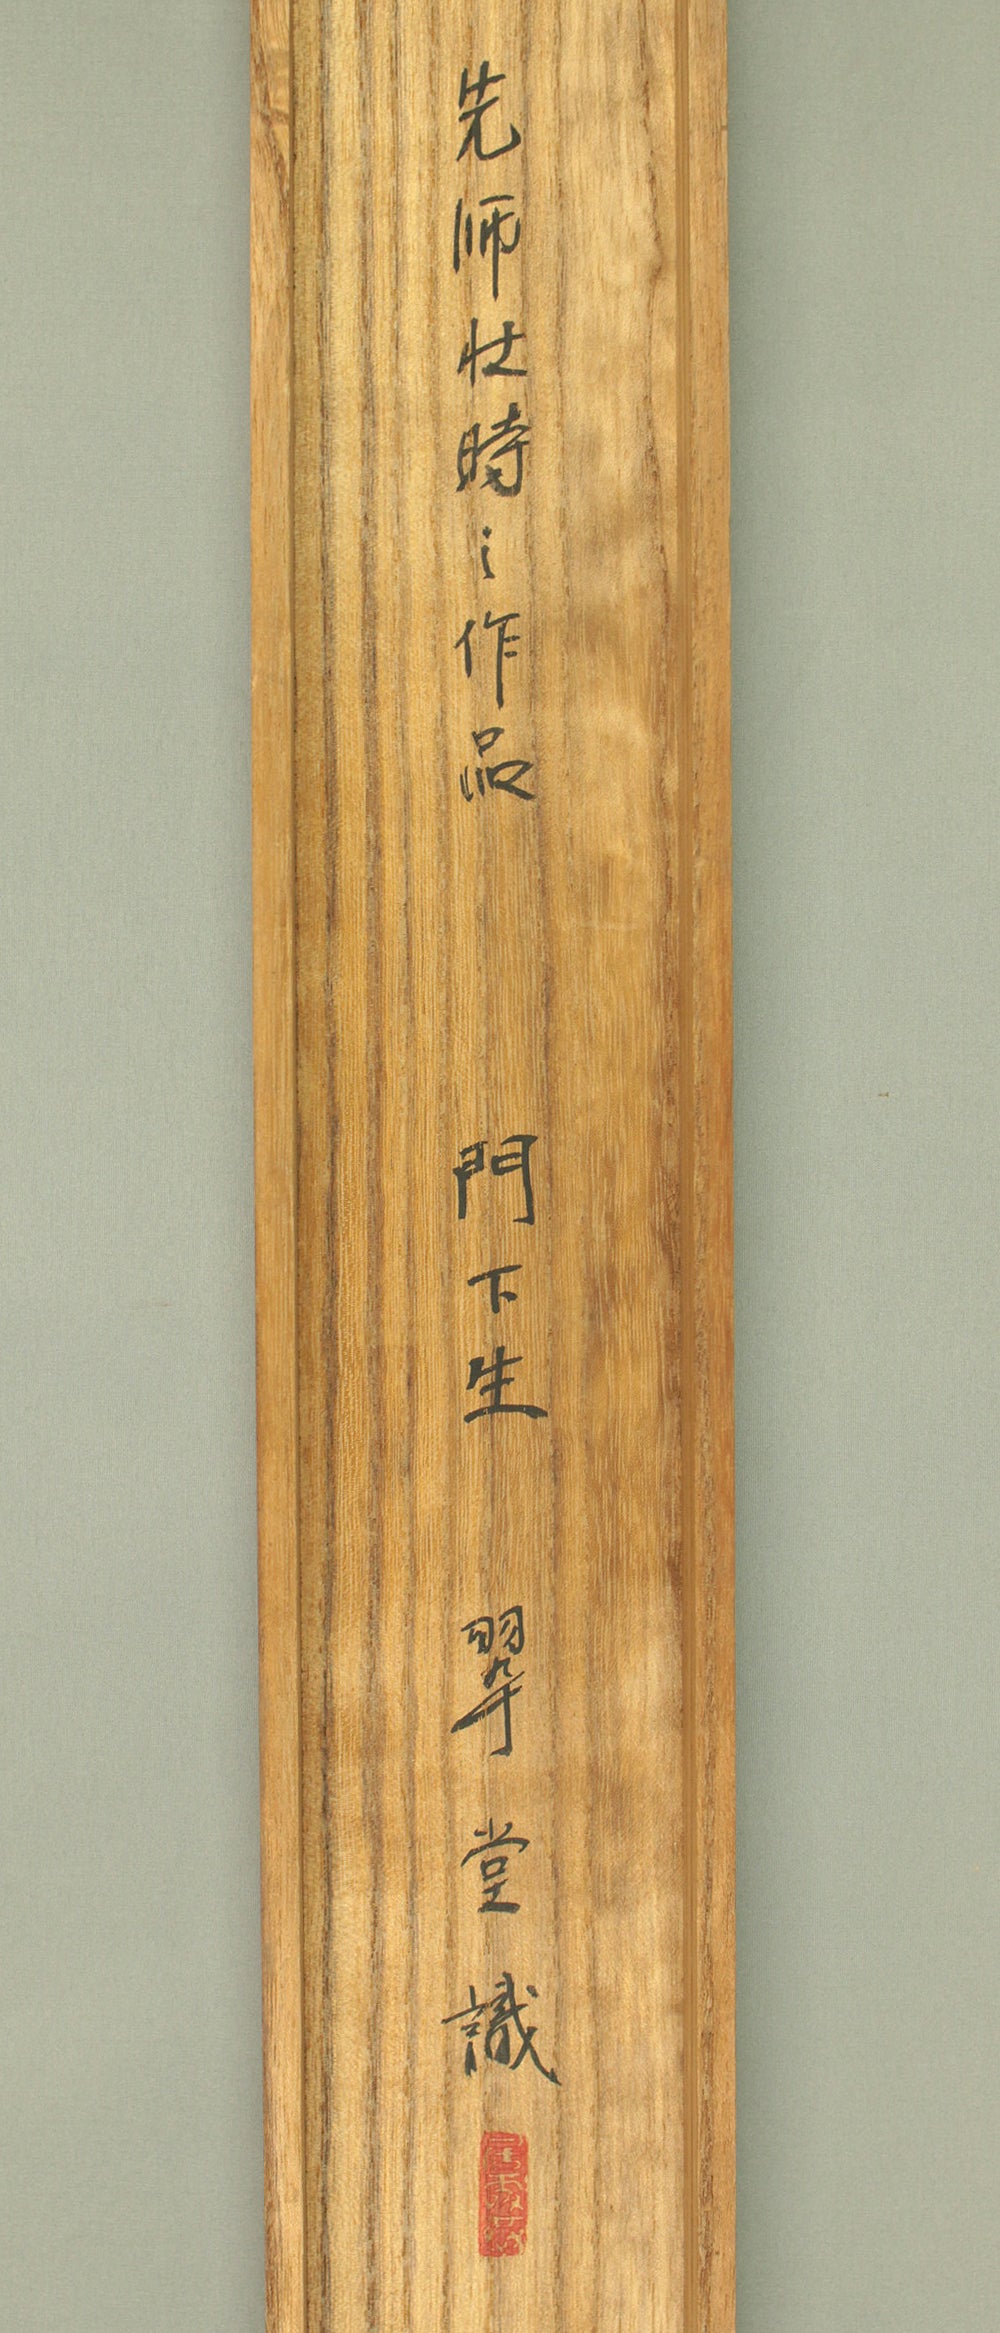 先師壮時之作品　門下生　翠堂識